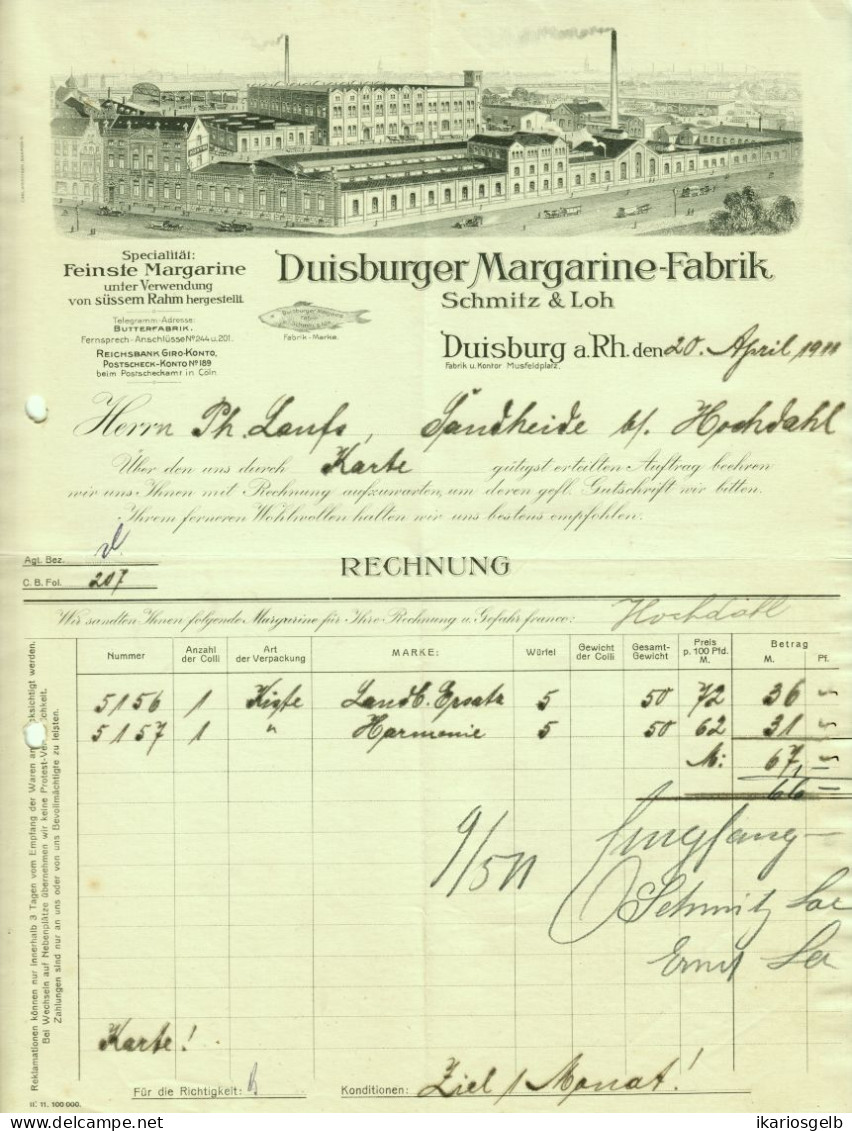 Specialität:
Feinste Margarine
unter Verwendung
von süssem Rahm hergestellt.
Telegramm-Adresse:
BUTTERFABRIK.
Fernsprech-Anschlüsse No 244 u. 201.
REICHSBANK GIRO-KONTO,
POSTSCHECK-KONTO No 189
beim Postscheckamt in Cöln.
Duisburger Margarine-Fabrik
Schmitz & Loh
Fabrik-Marke.
Duisburg a. Rh. den 20. April 1911
Fabrik u. Kontor Musfeldplatz.
Herrn Ph. Laufs, Sandheide b/ Hochdahl
Über den uns durch Karte gütigst erteilten Auftrag beehren
wir uns Ihnen mit Rechnung aufzuwarten, um deren gefl. Gutschrift wir bitten.
Ihrem ferneren Wohlwollen halten wir uns bestens empfohlen.
Agt. Bez.
C. B. Fol. 207
RECHNUNG
Wir sandten Ihnen folgende Margarine für Ihre Rechnung u. Gefahr franco: Hochdahl
Nummer Anzahl der Colli Art der Verpackung MARKE: Würfel Gewicht der Colli Gesamt-Gewicht Preis p. 100 Pfd. M. Betrag M. Pf.
5156 1 Kiste Landb. Ersatz 5 50 72 36 –
5157 1 " Harmonie 5 50 62 31 –
M: 67, –
66 –
9/5 11
Empfang
Schmitz Loh
Ernst
Karte!
Für die Richtigkeit:
Konditionen: Ziel 1 Monat!
Reklamationen können nur innerhalb 3 Tagen vom Empfang der Waren an cksichtigt werden.
Bei Wechseln auf Nebenplätze übernehmen wir keine Protest-Ver lichkeit.
Zahlungen sind nur an uns oder von uns Bevollmächtigte zu leisten.
II. 11. 100 000.
ikariosgelb